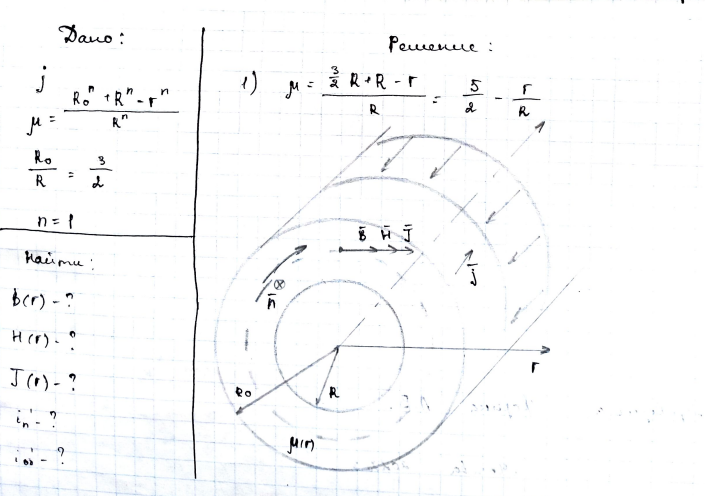 Дано:
j
μ = (R₀ⁿ + Rⁿ - rⁿ) / Rⁿ
R₀ / R = 3 / 2
n = 1
Найти:
B(r) - ?
H(r) - ?
J(r) - ?
iₙ' - ?
i об' - ?
Решение:
1) μ = (3/2 R + R - r) / R = 5/2 - r/R
B̄ H̄ J̄
n̄
j̄
r
R₀
R
μ(r)